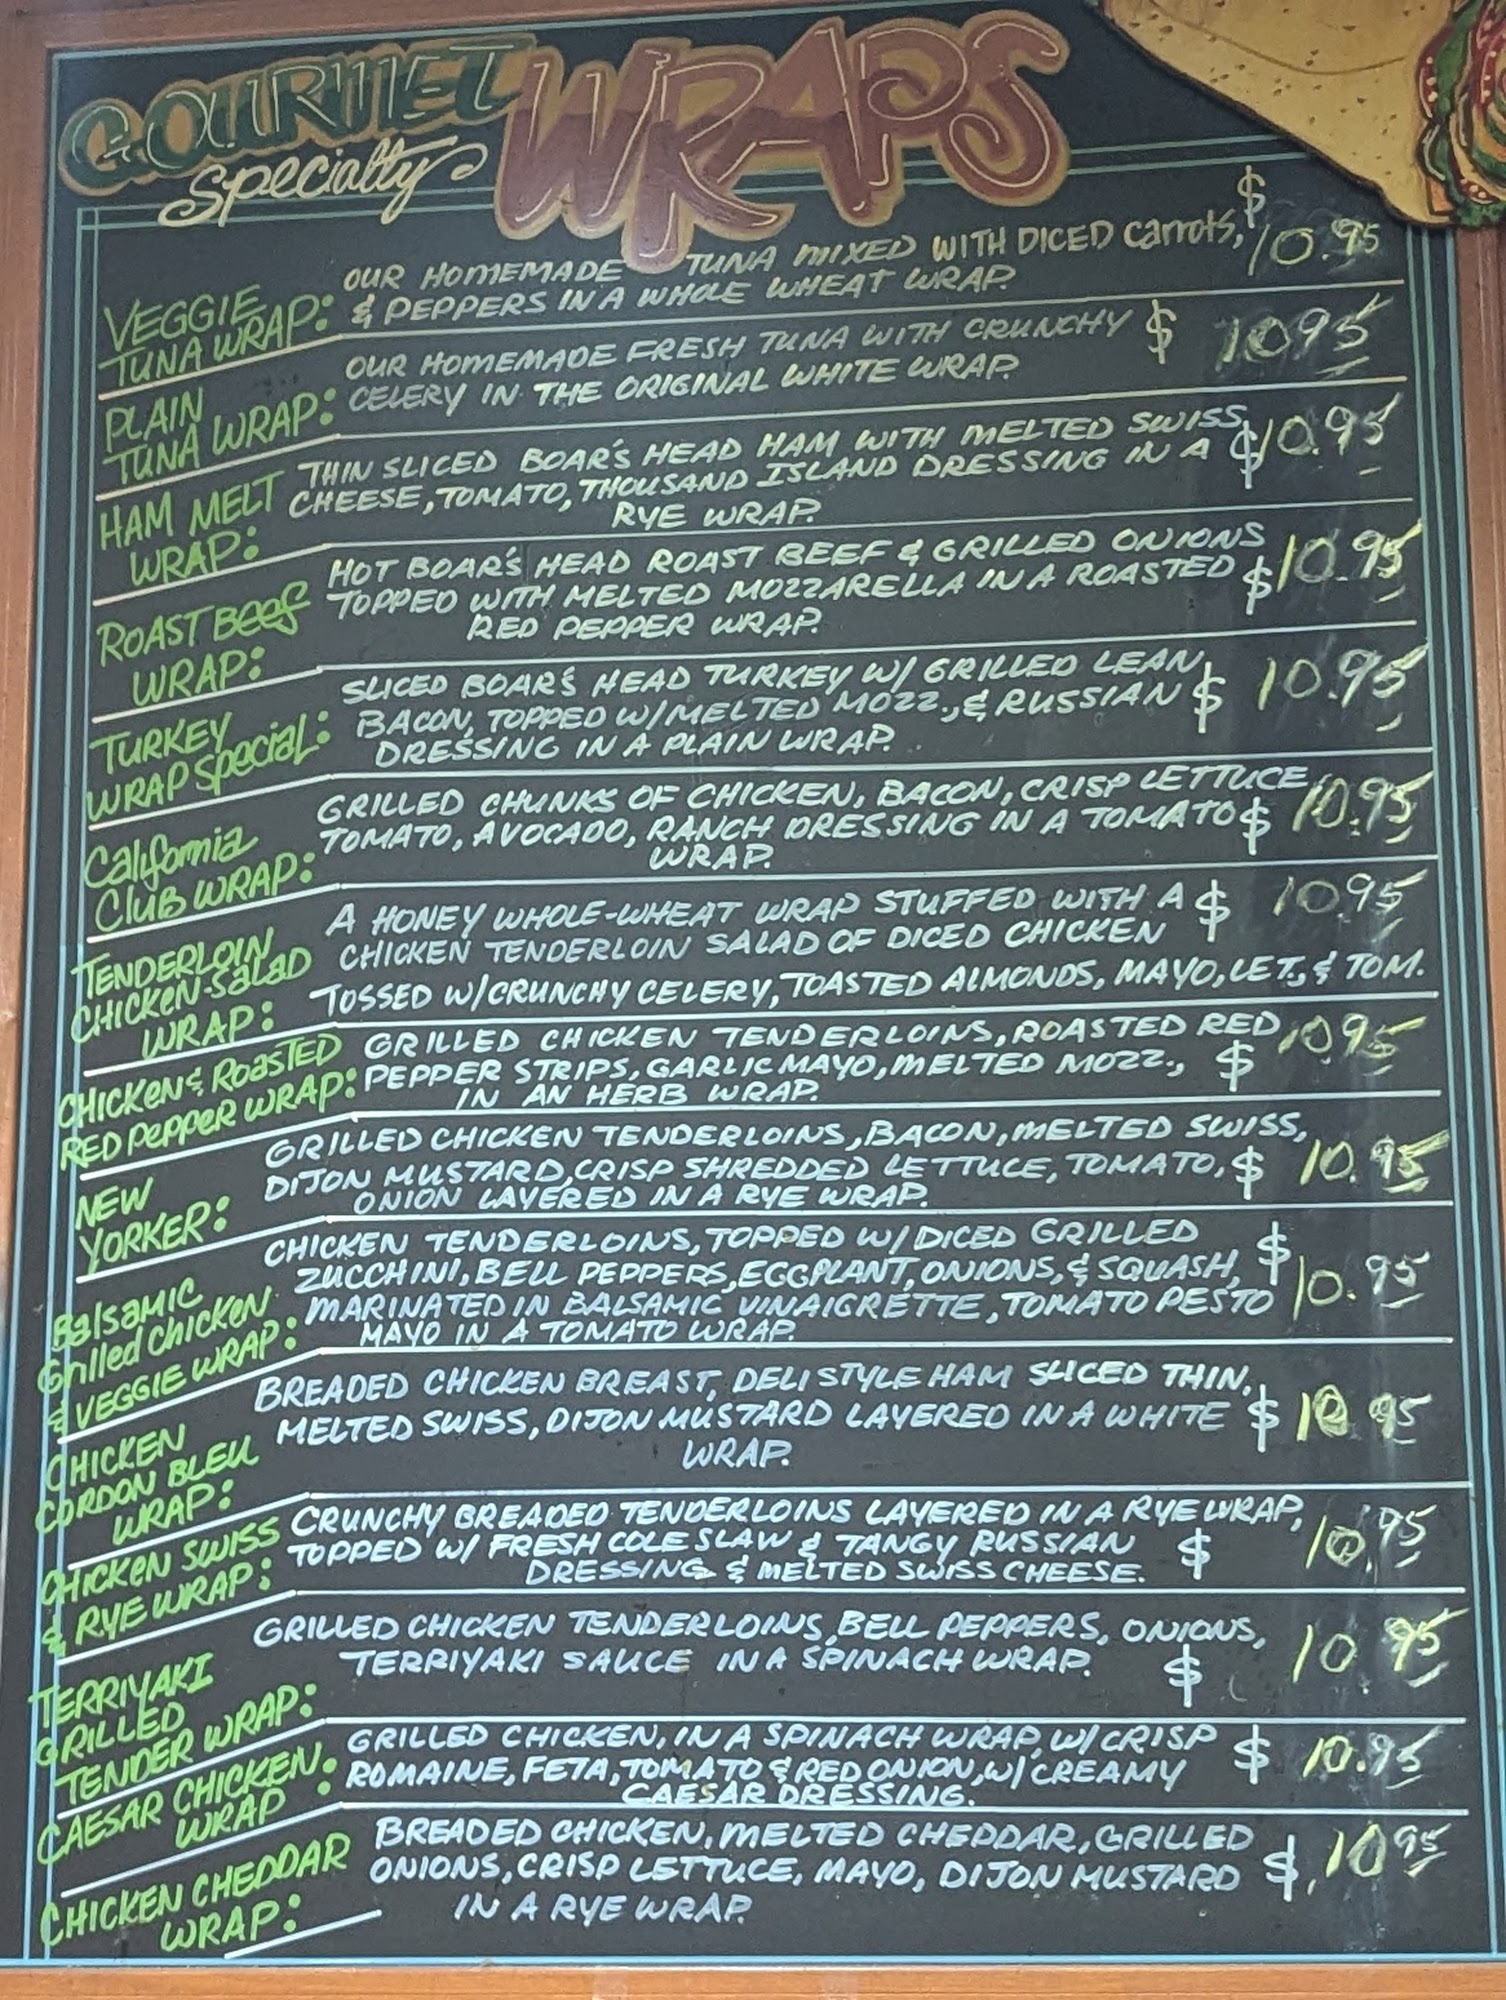 GOURMET WRAPS
Specialty
VEGGIE
TUNA WRAP:
OUR HOMEMADE TUNA MIXED WITH DICED carrots,
& PEPPERS IN A WHOLE WHEAT WRAP.
$ 10.95
PLAIN
TUNA WRAP:
OUR HOMEMADE FRESH TUNA WITH CRUNCHY
CELERY IN THE ORIGINAL WHITE WRAP.
$ 10 95
HAM MELT
WRAP:
THIN SLICED BOAR'S HEAD HAM WITH MELTED SWISS
CHEESE, TOMATO, THOUSAND ISLAND DRESSING IN A
RYE WRAP.
$ 10.95
ROAST Beef
WRAP:
HOT BOAR'S HEAD ROAST BEEF & GRILLED ONIONS
TOPPED WITH MELTED MOZZARELLA IN A ROASTED
RED PEPPER WRAP.
$ 10.95
TURKEY
WRAP Special:
SLICED BOAR'S HEAD TURKEY W/ GRILLED LEAN
BACON, TOPPED W/MELTED MOZZ., & RUSSIAN
DRESSING IN A PLAIN WRAP.
$ 10.95
California
Club WRAP:
GRILLED CHUNKS OF CHICKEN, BACON, CRISP LETTUCE
TOMATO, AVOCADO, RANCH DRESSING IN A TOMATO
WRAP.
$ 10.95
TENDERLOIN
CHICKEN-SALAD
WRAP:
A HONEY WHOLE-WHEAT WRAP STUFFED WITH A
CHICKEN TENDERLOIN SALAD OF DICED CHICKEN
TOSSED W/CRUNCHY CELERY, TOASTED ALMONDS, MAYO, LET., & TOM.
$ 10.95
CHICKEN & ROASTED
RED PEPPER WRAP:
GRILLED CHICKEN TENDERLOINS, ROASTED RED
PEPPER STRIPS, GARLIC MAYO, MELTED MOZZ.,
IN AN HERB WRAP.
$ 10.95
NEW
YORKER:
GRILLED CHICKEN TENDERLOINS, BACON, MELTED SWISS,
DIJON MUSTARD, CRISP SHREDDED LETTUCE, TOMATO,
ONION LAYERED IN A RYE WRAP.
$ 10.95
Balsamic
Grilled Chicken
& VEGGIE WRAP:
CHICKEN TENDERLOINS, TOPPED W/DICED GRILLED
ZUCCHINI, BELL PEPPERS, EGGPLANT, ONIONS, & SQUASH,
MARINATED IN BALSAMIC VINAIGRETTE, TOMATO PESTO
MAYO IN A TOMATO WRAP.
$ 10.95
CHICKEN
CORDON BLEU
WRAP:
BREADED CHICKEN BREAST, DELI STYLE HAM SLICED THIN,
MELTED SWISS, DIJON MUSTARD LAYERED IN A WHITE
WRAP.
$ 10.95
CHICKEN SWISS
& RYE WRAP:
CRUNCHY BREADED TENDERLOINS LAYERED IN A RYE WRAP,
TOPPED W/ FRESH COLE SLAW & TANGY RUSSIAN
DRESSING & MELTED SWISS CHEESE.
$ 10.95
TERRIYAKI
GRILLED
TENDER WRAP:
GRILLED CHICKEN TENDERLOINS, BELL PEPPERS, ONIONS,
TERRIYAKI SAUCE IN A SPINACH WRAP.
$ 10.95
CAESAR CHICKEN
WRAP:
GRILLED CHICKEN, IN A SPINACH WRAP, W/CRISP
ROMAINE, FETA, TOMATO & RED ONION, W/ CREAMY
CAESAR DRESSING.
$ 10.95
CHICKEN CHEDDAR
WRAP:
BREADED CHICKEN, MELTED CHEDDAR, GRILLED
ONIONS, CRISP LETTUCE, MAYO, DIJON MUSTARD
IN A RYE WRAP.
$ 10 95